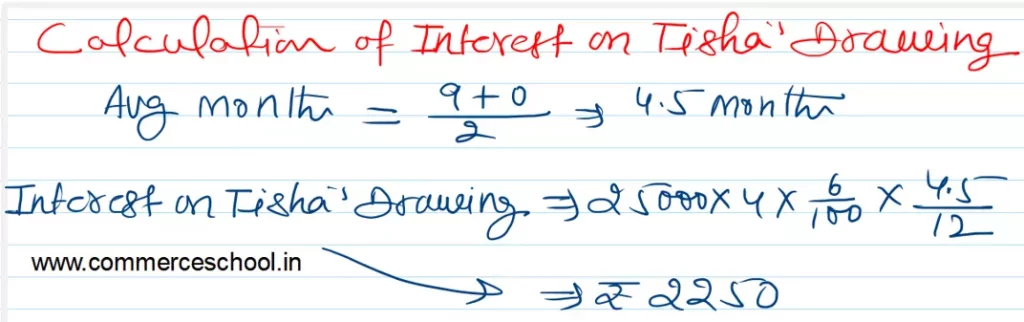 Calculation of Interest on Tisha's Drawing
Avg months = 9+0/2 ⇒ 4.5 months
Interest on Tisha's Drawing ⇒ 25000 × 4 × 6/100 × 4.5/12
www.commerceschool.in
⇒ ₹ 2250